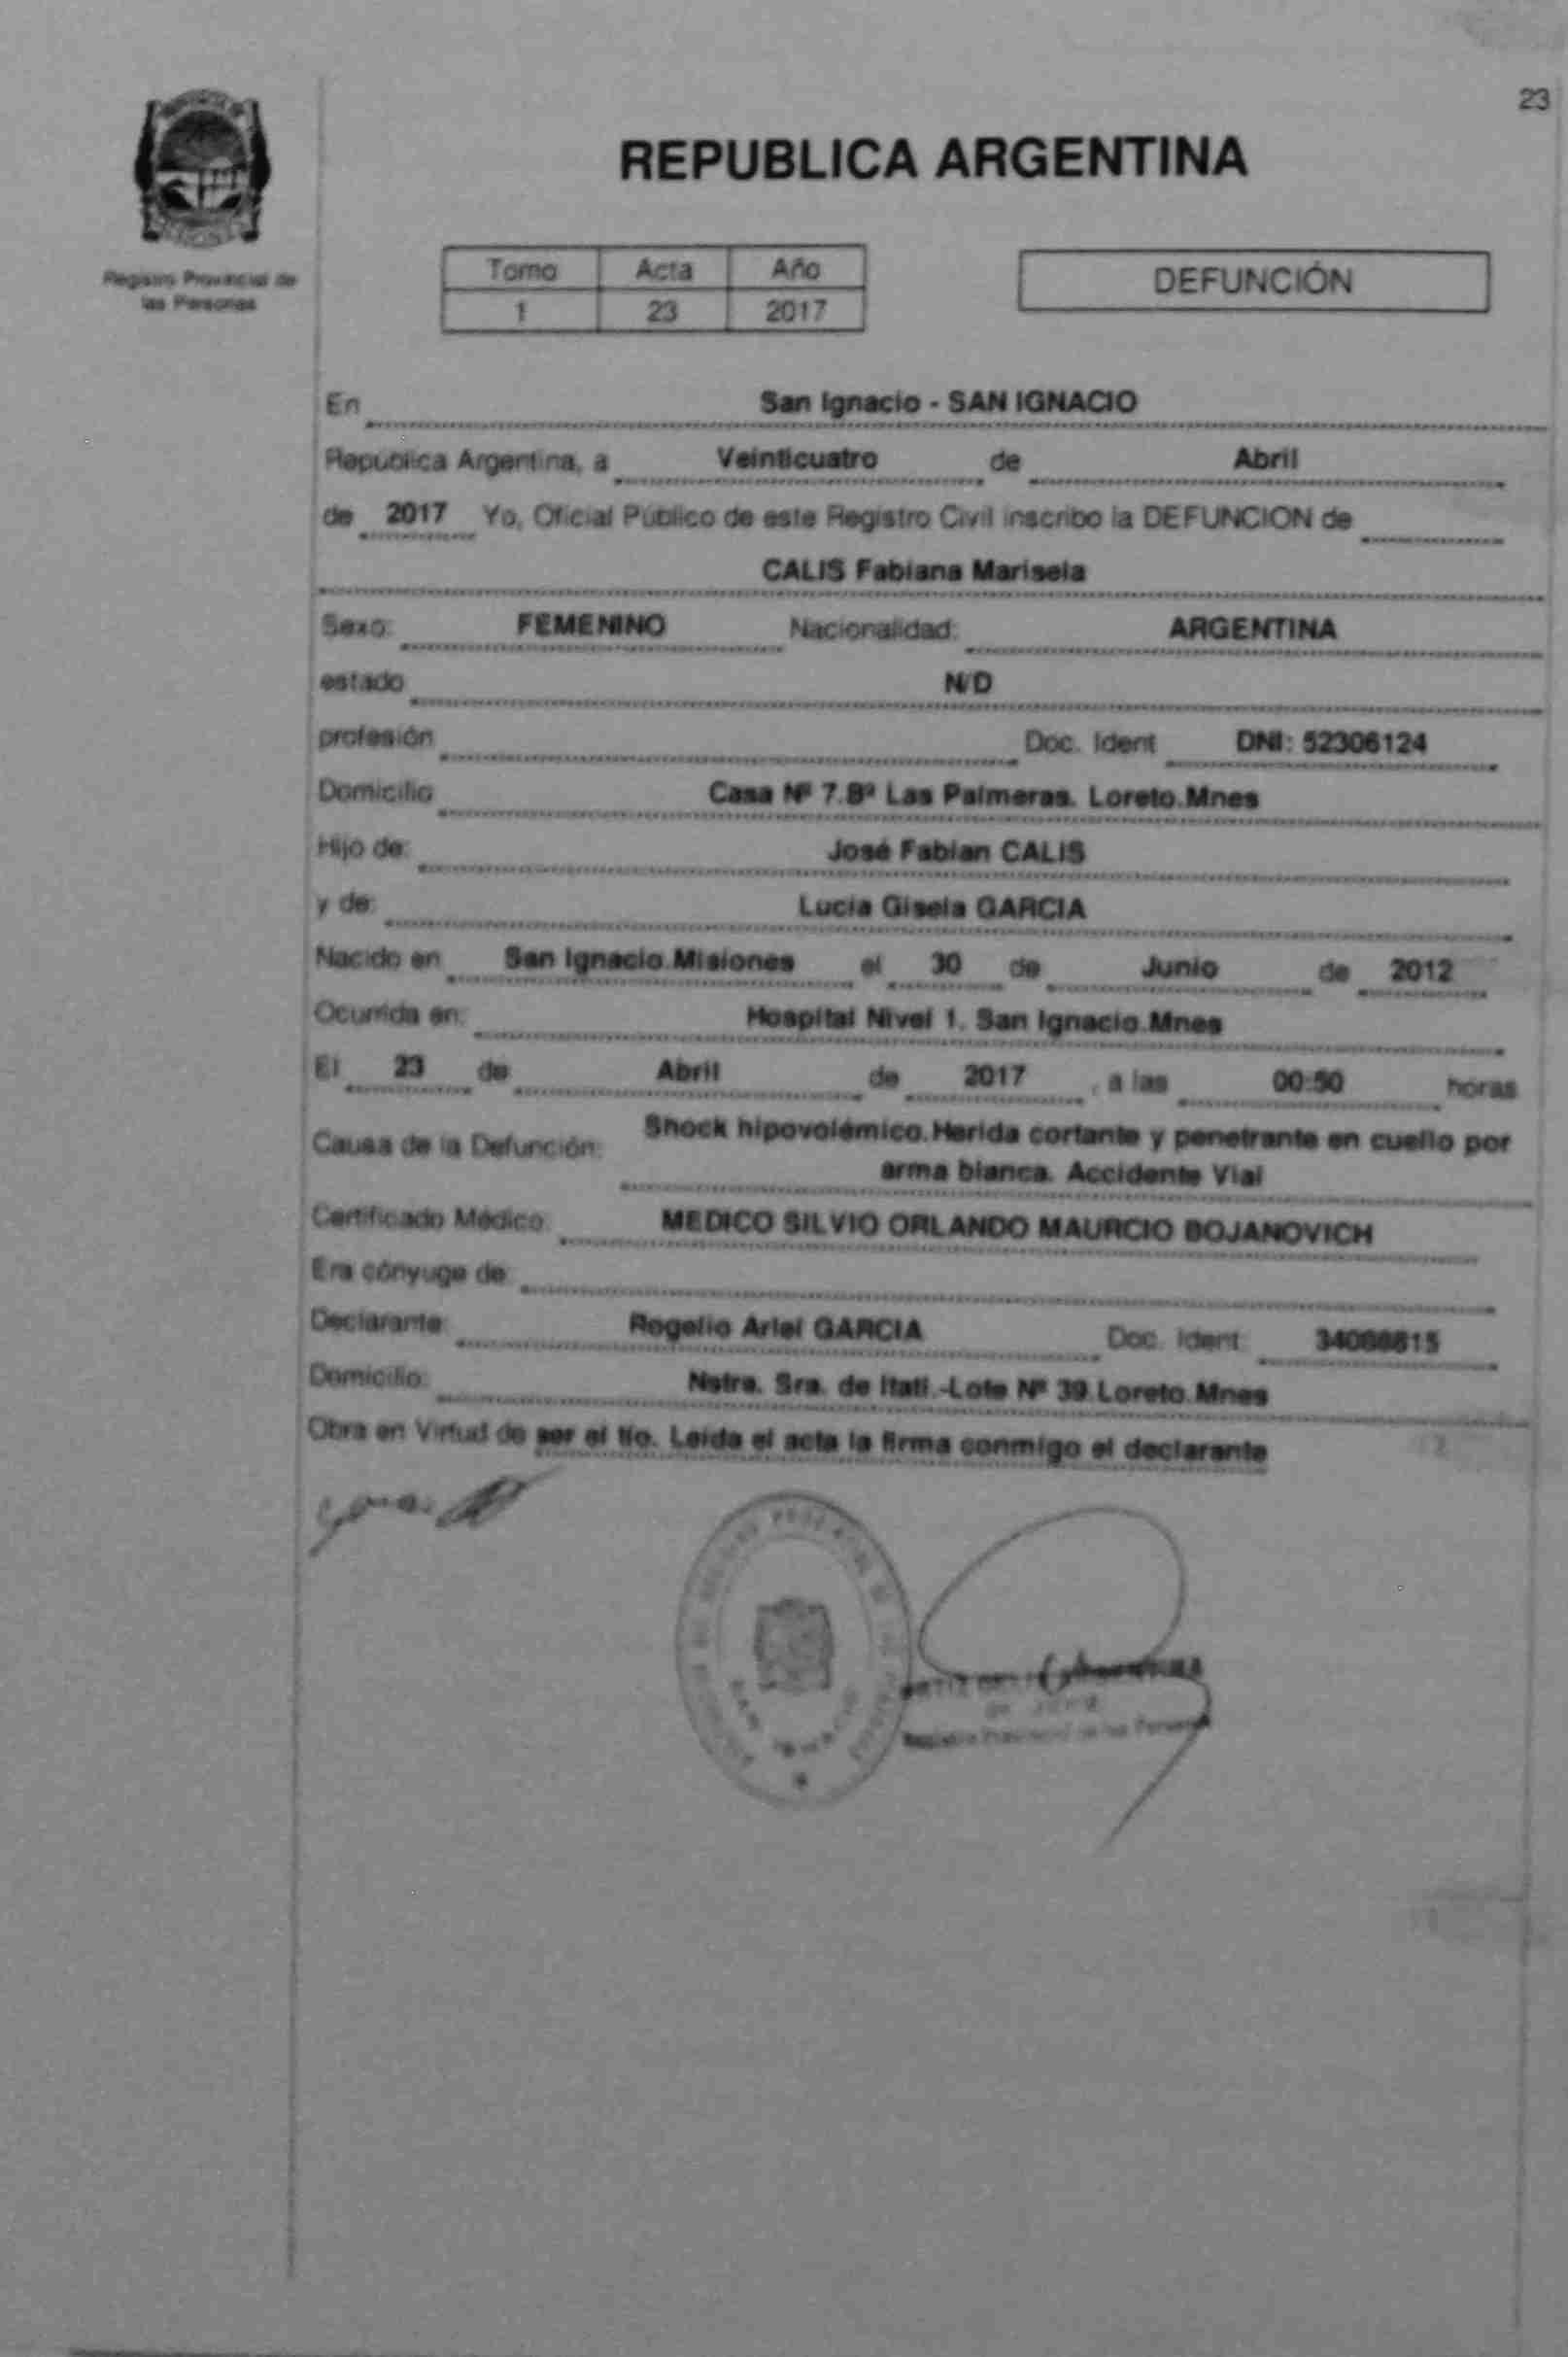 23
REPUBLICA ARGENTINA
Registro Provincial de
las Personas
Tomo Acta Año
1 23 2017
DEFUNCIÓN
En San Ignacio - SAN IGNACIO
Republica Argentina, a Veinticuatro de Abril
de 2017 Yo, Oficial Público de este Registro Civil inscribo la DEFUNCION de
CALIS Fabiana Marisela
Sexo: FEMENINO Nacionalidad: ARGENTINA
estado N/D
profesión Doc. Ident DNI: 52306124
Domicilio Casa Nº 7.Bº Las Palmeras. Loreto.Mnes
Hijo de: José Fabian CALIS
y de: Lucia Gisela GARCIA
Nacido en San Ignacio.Misiones el 30 de Junio de 2012
Ocurrida en: Hospital Nivel 1. San Ignacio.Mnes
El 23 de Abril de 2017 , a las 00:50 horas
Causa de la Defunción: Shock hipovolémico.Herida cortante y penetrante en cuello por
arma blanca. Accidente Vial
Certificado Médico: MEDICO SILVIO ORLANDO MAURCIO BOJANOVICH
Era cónyuge de:
Declarante: Rogelio Ariel GARCIA Doc. Ident:
Domicilio: Nstra. Sra. de Itatí.-Lote Nº 39.Loreto.Mnes
Obra en Virtud de ser el tío. Leída el acta la firma conmigo el declarante
Registro Provincial de las Personas